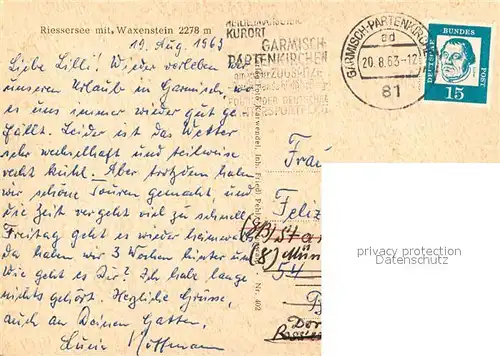 Riessersee mit Waxenstein 2278 m
19. Aug. 1963
Liebe Lilli! Wieder verleben
unseren Urlaub in Garmisch, wo
es uns immer wieder gut ge-
fällt. Leider ist das Wetter
sehr wechselhaft und teilweise
recht kühl. Aber trotzdem haben
wir schöne Touren gemacht und
die Zeit vergeht viel zu schnell.
Freitag geht es wieder heimwärts.
Da haben wir 3 Wochen hinter uns.
Wie geht es Dir? Ich habe lange
nichts gehört. Herzliche Grüsse,
auch an Deinen Gatten,
Hoffmann
HEILKLIMATISCHER
KURORT
GARMISCH-
PARTENKIRCHEN
GARMISCH-PARTENKIRCHEN
ad
20.8.63-12
81
DEUTSCHE
BUNDES
POST
15
Karwendel, Inh. Friedl
Nr. 402
Frau
Feliz
(8) Mün
54
privacy protection
Datenschutz